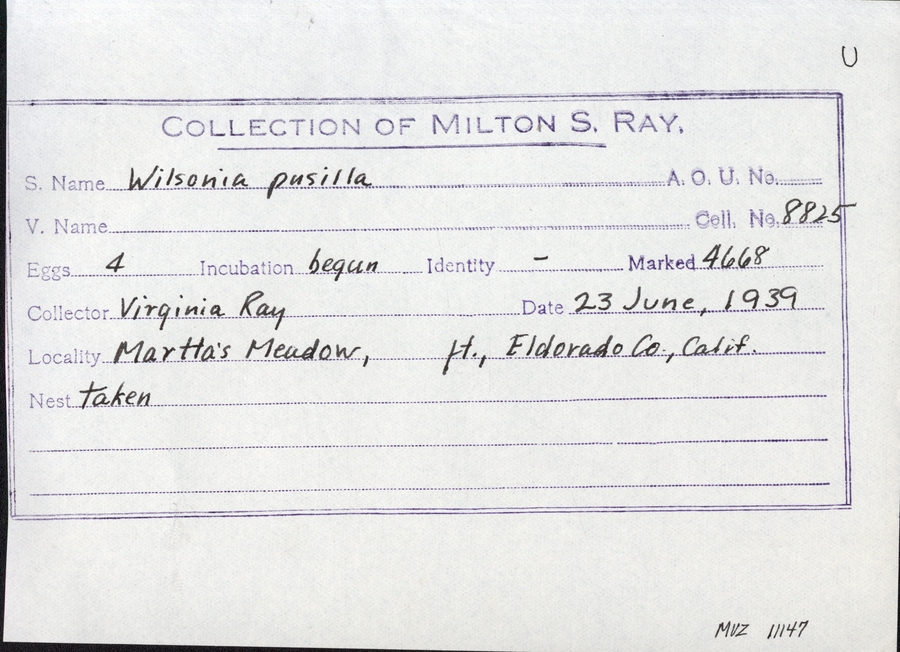 U
COLLECTION OF MILTON S. RAY.
S. Name Wilsonia pusilla A. O. U. No.
V. Name Coll. No. 8825
Eggs 4 Incubation begun Identity - Marked 4668
Collector Virginia Ray Date 23 June, 1939
Locality Martta's Meadow, ft., Eldorado Co., Calif.
Nest taken
MVZ 11147